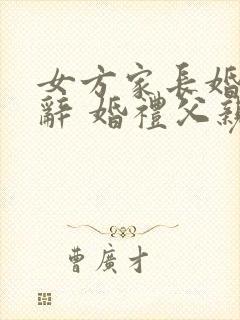 女方家長婚
辭 婚禮父親
曹廣才